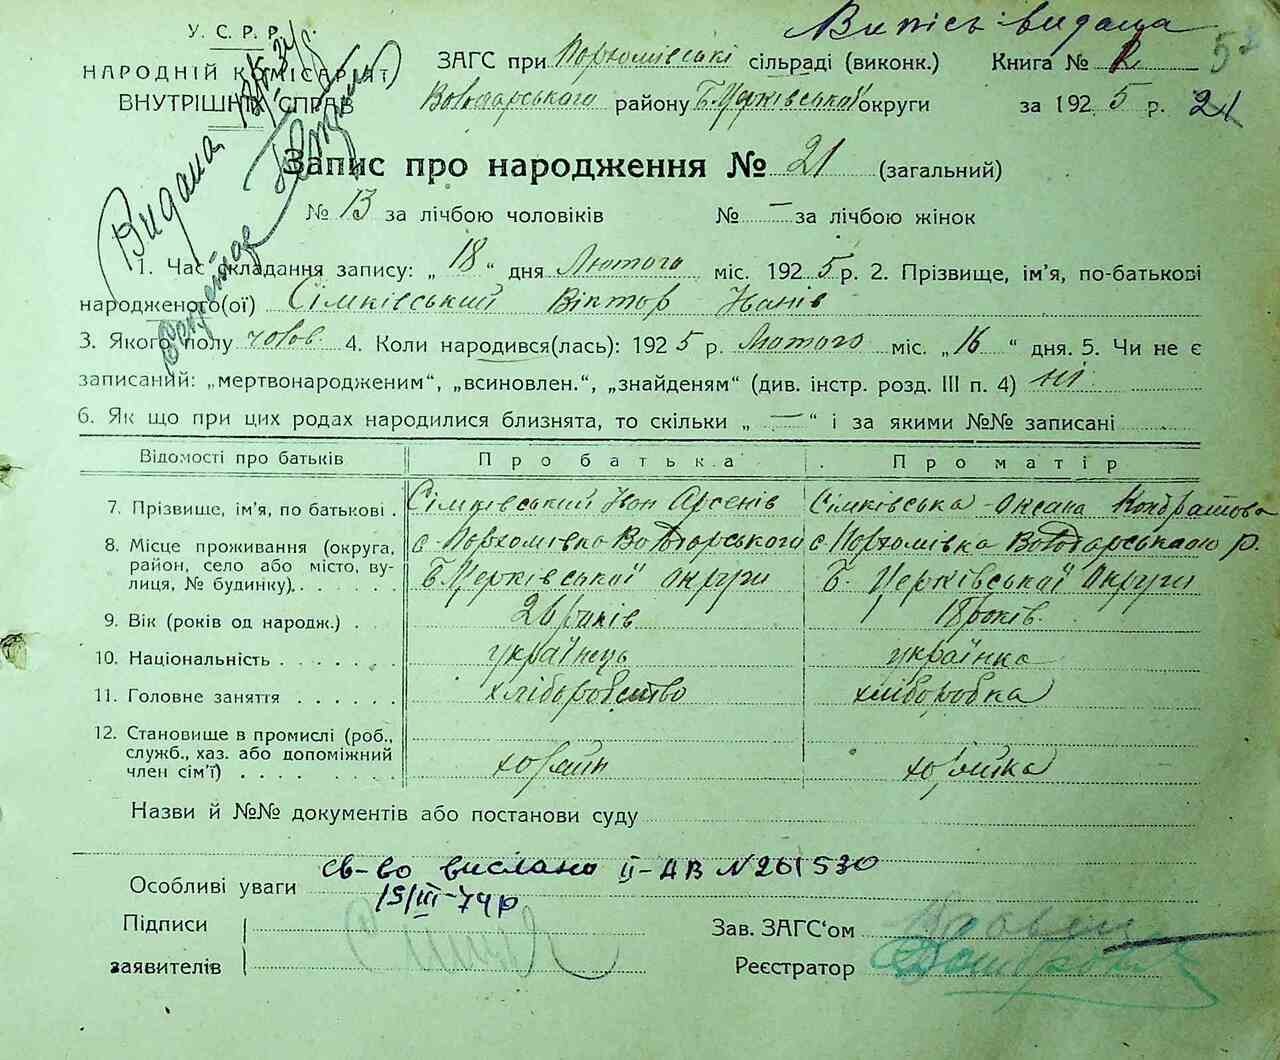 Випісь видана
У. С. Р. Р.
НАРОДНІЙ КОМІСАРІЯТ
ВНУТРІШНІХ СПРАВ
ЗАГС при Пархомівські сільраді (виконк.) Книга № 2
Володарського району Б.Церківської округи за 1925 р. 21
Видана
Запис про народження № 21 (загальний)
№ 13 за лічбою чоловіків № — за лічбою жінок
1. Час складання запису: „ 18 “ дня Лютого міс. 1925 р. 2. Прізвище, ім'я, по-батькові
народженого(ої) Сімківський Віктор Іванів
3. Якого полу чолов. 4. Коли народився(лась): 1925 р. Лютого міс. „ 16 “ дня. 5. Чи не є
записаний: „мертвонародженим“, „всиновлен.“, „знайденям“ (див. інстр. розд. III п. 4) ні
6. Як що при цих родах народилися близнята, то скільки „ — “ і за якими №№ записані
Відомості про батьків Про батька Про матір
7. Прізвище, ім'я, по батькові . Сімківський Іван Арсенів Сімківська Оксана Кондратова
8. Місце проживання (округа, с. Пархомівка Володарського с Пархомівка Володарського р.
район, село або місто, ву-
лиця, № будинку). Б.Церківської округи Б. Церківської Округи
9. Вік (років од народж.) . 26 років 18 років.
10. Національність українець українка
11. Головне заняття хліборобство хліборобка
12. Становище в промислі (роб.,
служб., хаз. або допоміжний
член сім'ї) хазяїн хазяйка
Назви й №№ документів або постанови суду
св-во вислано II-АВ N 261530
Особливі уваги 15/III-74р
Підписи
заявителів
Зав. ЗАГС'ом
Реєстратор